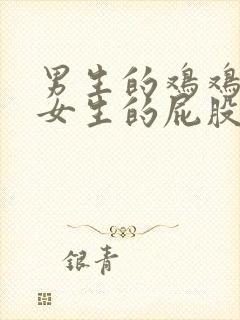 男生的鸡鸡
女生的屁股
银青